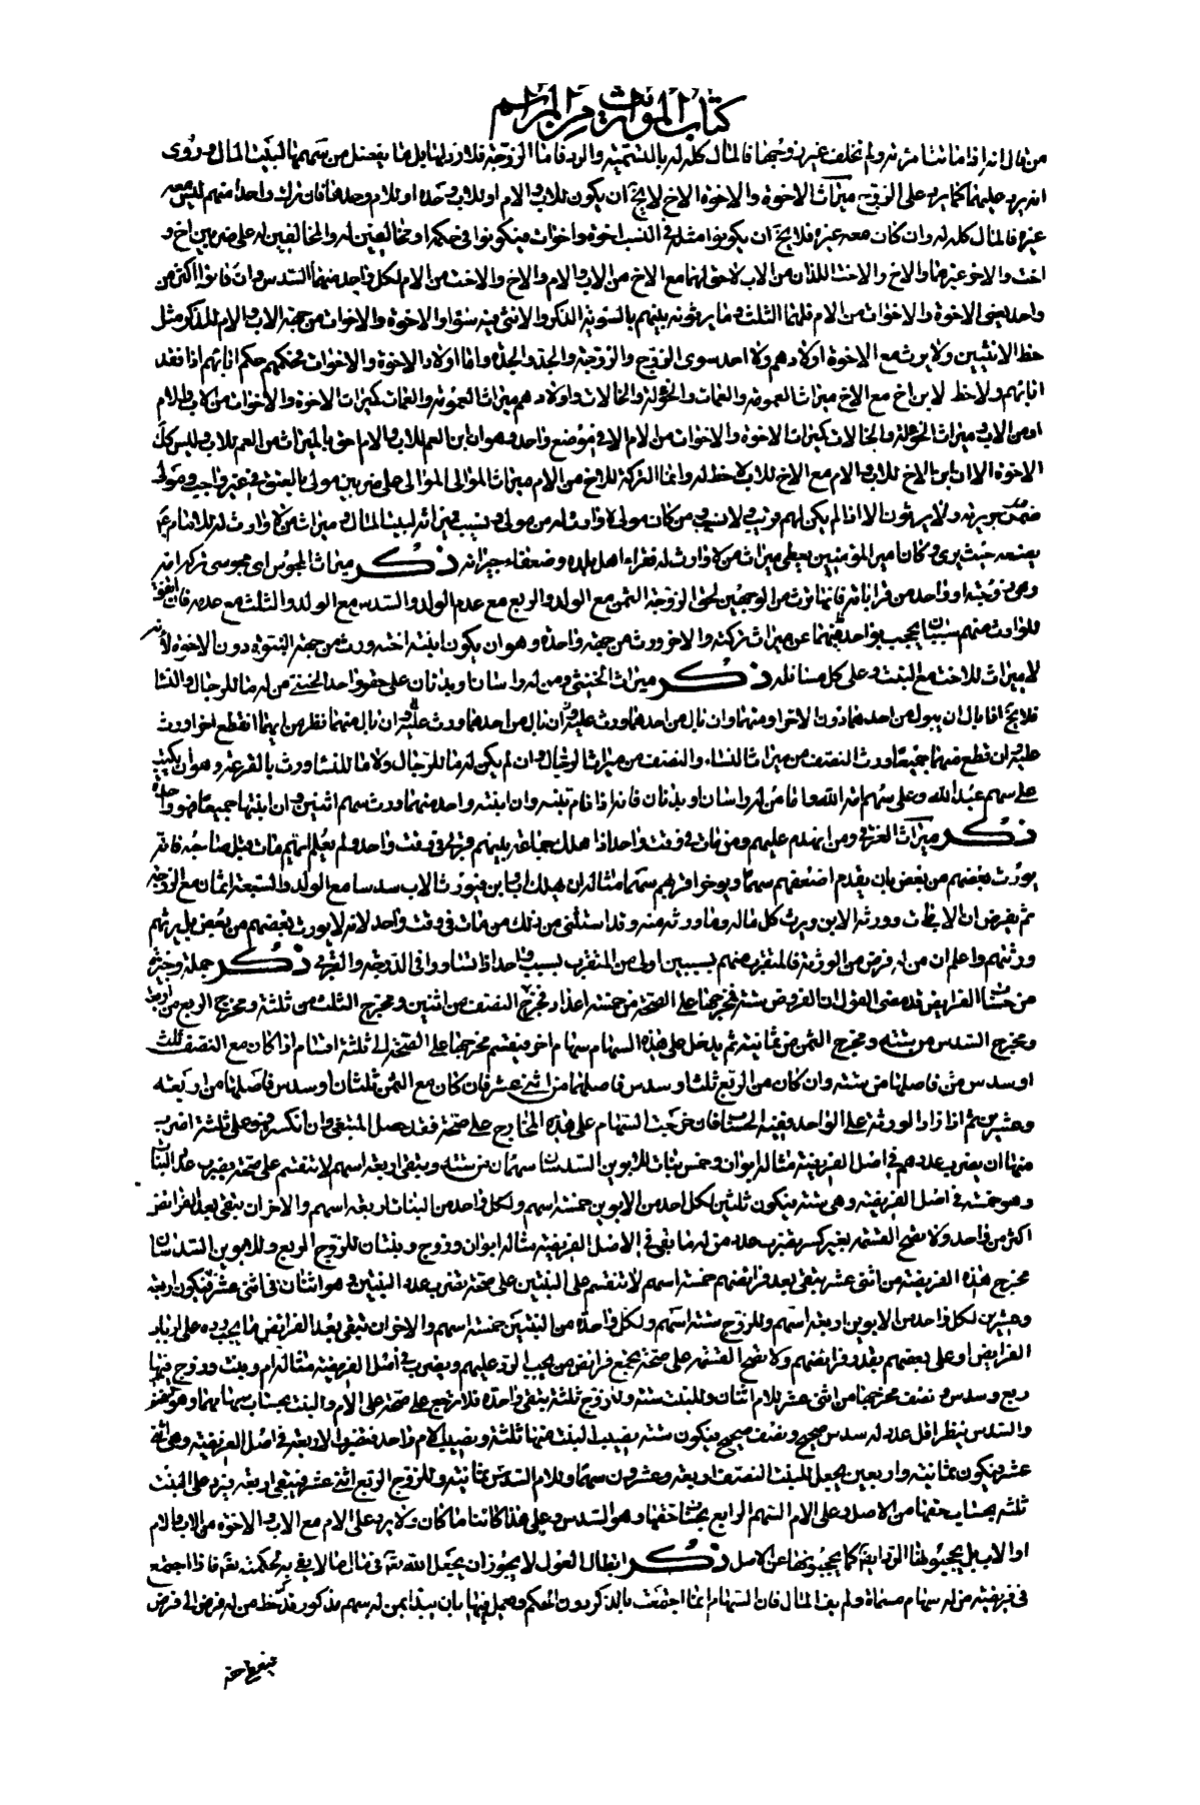 كتاب المواريث من المراسم
من قال انه اذا ماتت امرئة ولم تخلف غير زوجها فالمال كله له بالتسمية والرد فاما الزوجة فلا رد لها بل ما يفضل من سهمها لبيت المال وروى
انه يرد عليها كما يرد على الزوج ميراث الاخوة والاخوة الاخ لا يخ ان يكون للاب والام او للاب وحده او للام وحدها فان ترك واحدا منهم ليس معه
غيره فالمال كله له وان كان معه غيره فلا يخ ان يكونوا مثله في النسب اخوة واخوات فيكونوا في حكمه او مخالفين له والمخالفين له على ضربين اخ و
اخت والاخ غيرهما والاخ والاخت اللذان من الاب لا حق لهما مع الاخ من الاب والام والاخ والاخت من الام لكل واحد منهما السدس وان كانوا اكثر من
واحد يعنى الاخوة والاخوات من الام فلهما الثلث وما يرثونه بينهم بالسوية الذكر والانثى فيه سواء والاخوة والاخوات من جهة الاب والام للذكر مثل
حظ الانثيين ولا يرث مع الاخوة اولادهم ولا احد سوى الزوج والزوجة والجد والجدة واما اولاد الاخوة والاخوات فحكمهم حكم ابائهم اذا فقد
ابائهم ولا حظ لابن اخ مع الاخ ميراث العمومة والعمات والخؤلة والخالات واولادهم ميراث العمومة والعمات كميراث الاخوة والاخوات من الاب والام
او من الاب وميراث الخؤلة والخالات كميراث الاخوة والاخوات من الام الا في موضع واحد وهو ان ابن العم للاب والام احق بالميراث من العم للاب وليس كك
الاخوة الا ان ابن الاخ للاب والام مع الاخ للاب لا حظ له وانما التركة للاخ من الام ميراث الموالى الموالى على ضربين مولى بالعتق في غير واجب ومولى
ضمن جريرته ولا يرثون الا اذا لم يكن لهم قريب لا نسيب ومن كان مولى لا وارث له من مولى ونسيب فميراثه لبيت المال وميراث من لا وارث له للامام ع
يصنعه حيث يرى وكان امير المؤمنين يعطى ميراث من لا وارث له فقراء اهل بلده وضعفاء جيرانه ذكر ميراث المجوس اى مجوسى ترك امه
وهى زوجته او واحد من قراباته فانها ترث من الوجهين لحق الزوجة الثمن مع الولد والربع مع عدم الولد والسدس مع الولد والثلث مع عدمه فان اتفق
للوارث منهم سببان يحجب بواحد منهما عن ميراث تركته والاخر ورث من جهة واحدة وهو ان يكون ابنته اخته ورث من جهة البنوة دون الاخوة لانه
لا ميراث للاخت مع البنت وعلى كل مسائله ذكر ميراث الخنثى ومن له راسان او بدنان على حقو واحد الخنثى من له ما للرجال والنساء
فلا يخ اذا بال ان يبول من احدهما دون الاخر او منهما وان بال من احدهما ورث عليه وان بال منهما نظر من ايهما انقطع اخرا ورث
عليه وان قطع منهما جميعا ورث النصف من ميراث النساء والنصف من ميراث الرجال وان لم يكن له ما للرجال ولا ما للنساء ورث بالقرعة وهو ان يكتب
على سهم عبد الله وعلى سهم امة الله واما من له راسان او بدنان فانه اذا نام نبه وان انتبه واحد منهما ورث سهم اثنين وان انتبها جميعا فهو واحد
ذكر ميراث الغرقى ومن انهدم عليهم ومن مات في وقت واحد اذا هلك جماعة بينهم قرابة في وقت واحد ولم يعلم ايهم مات قبل صاحبه فانه
يورث بعضهم من بعض بان يقدم اضعفهم سهما ويؤخر اوفرهم سهما مثاله ان يهلك اب وابن فيورث الاب سدسا مع الولد والسبعة اثمان مع الزوجة
ثم يفرض ان الاب مات وورثه الابن ويرث كل ماله وما ورثه منه وقد استثنى من ذلك من مات في وقت واحد لانه لا يورث بعضهم من بعض بل يرثهم
ورثتهم واعلم ان من له فرض من الورثة فالمتقرب منهم بسببين اولى من المتقرب بسبب واحد اذا تساووا في الدرجة والقربى ذكر جملة وجيزة
من حساب الفرايض قد مضى القول ان الفروض ستة فمخرجها على الصحة من خمسة اعداد فمخرج النصف من اثنين ومخرج الثلث من ثلثة ومخرج الربع من اربعة
ومخرج السدس من ستة ومخرج الثمن من ثمانية ثم يدخل على هذه السهام سهام اخر فينقسم مخرجها على الصحة الى ثلثة اقسام اذا كان مع النصف ثلث
او سدس فمن فاصلها من ستة وان كان من الربع ثلث او سدس فاصلها من اثنى عشر فان كان مع الثمن ثلثان او سدس فاصلها من اربعة
وعشرين ثم اذا زاد الورثة على الواحد وفيه الحساب فان خرجت السهام على هذه المخارج على صحة فقد حصل المبتغى وان انكسر فهو على ثلثة اضرب
منها ان يضرب عددهم في اصل الفريضة مثاله ابوان وخمس بنات للابوين السدسان سهمان من ستة ويبقى اربعة اسهم لا تنقسم على صحة يضرب عدد البنات
وهو خمسة في اصل الفريضة وهى ستة فيكون ثلثين لكل واحد من الابوين خمسة اسهم ولكل واحد من البنات اربعة اسهم والاخر ان يبقى بعد الفرائض
اكثر من واحد ولا يصح القسمة بغير كسر يضرب عدد من له ما بقى في الاصل الفريضة مثاله ابوان وزوج وبنتان للزوج الربع وللابوين السدسان
مخرج هذه الفريضة من اثنى عشر يبقى بعد فرائضهم خمسة اسهم لا تنقسم على البنتين على صحة يضرب عدد البنتين وهو اثنان في اثنى عشر فيكون اربعة
وعشرين لكل واحد من الابوين اربعة اسهم وللزوج ستة اسهم ولكل واحدة من البنتين خمسة اسهم والاخر ان تبقى بعد الفرائض ما يجب رده على ارباب
الفرائض او على بعضهم بقدر فرائضهم ولا يصح القسمة على صحة يجمع فرائض من يجب الرد عليهم ويضرب في اصل الفريضة مثاله ام وبنت وزوج فيها
ربع وسدس ونصف مخرجها من اثنى عشر للام اثنان وللبنت ستة وللزوج ثلثة يبقى واحدة فلا ترجع على صحة على الام والبنت بحساب سهامهما وهو النصف
والسدس ينظر اقل عدد له سدس صحيح ونصف صحيح فيكون ستة نصيب البنت منها ثلثة ونصيب الام واحد فتضرب الاربعة في اصل الفريضة وهى اثنا
عشر فيكون ثمانية واربعين يجعل للبنت النصف اربعة وعشرون سهما وللام السدس ثمانية وللزوج الربع اثنى عشر فيبقى اربعة فيرد على البنت
ثلثة بحساب حقها من الاصل وعلى الام السهم الرابع بحساب حقها وهو السدس وعلى هذا كائنا ما كان ولا يرد على الام مع الاب والاخوة من الاب والام
او الاب بل يحجبونها الرد ايضا كما يحجبونها عن الاصل ذكر ابطال العول لا يجوز ان يجعل الله تع في مال ما لا يفى به لحكمته تع فاذا اجتمع
في فريضة من له سهام مسماة ولم يف المال فان السهام انما اجتمعت بالذكر دون الحكم وعمل فيها بان يبتدا بمن له سهم مذكور قد حظ من له فرض الى فرض